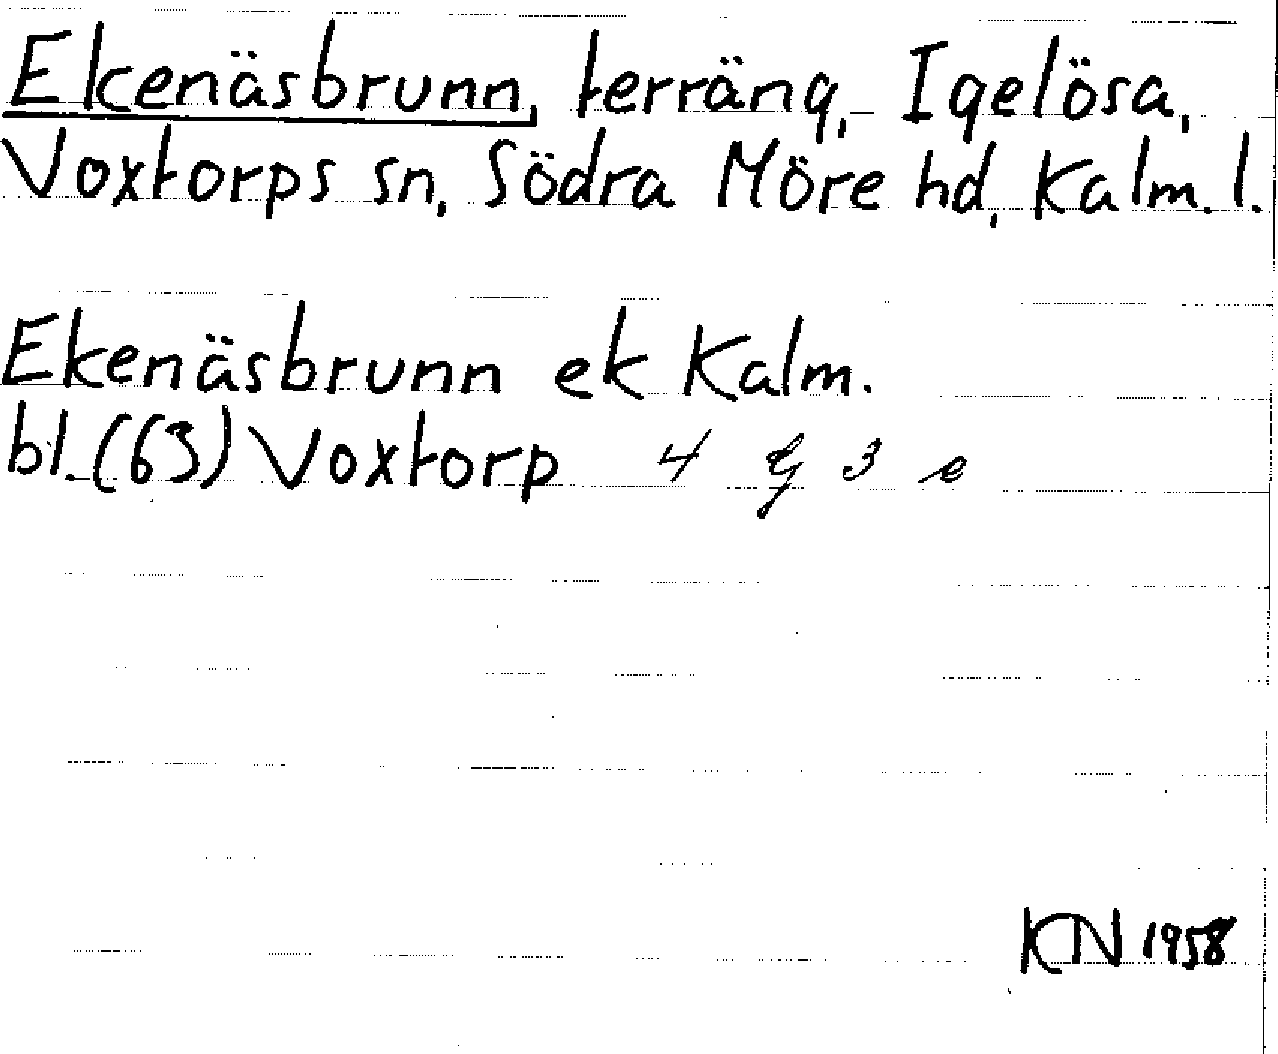 Ekenäsbrunn, terräng, Igelösa,
Voxtorps sn, Södra Möre hd, Kalm. l.
Ekenäsbrunn ek Kalm.
bl. (63) Voxtorp 4 G 3 e
KN 1958